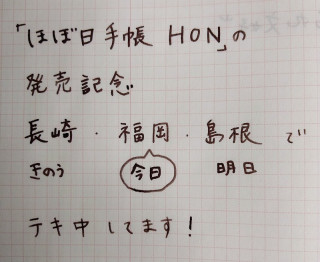 「ほぼ日手帳 HON」の
発売記念
長崎・福岡・島根で
きのう 今日 明日
テキ中してます!